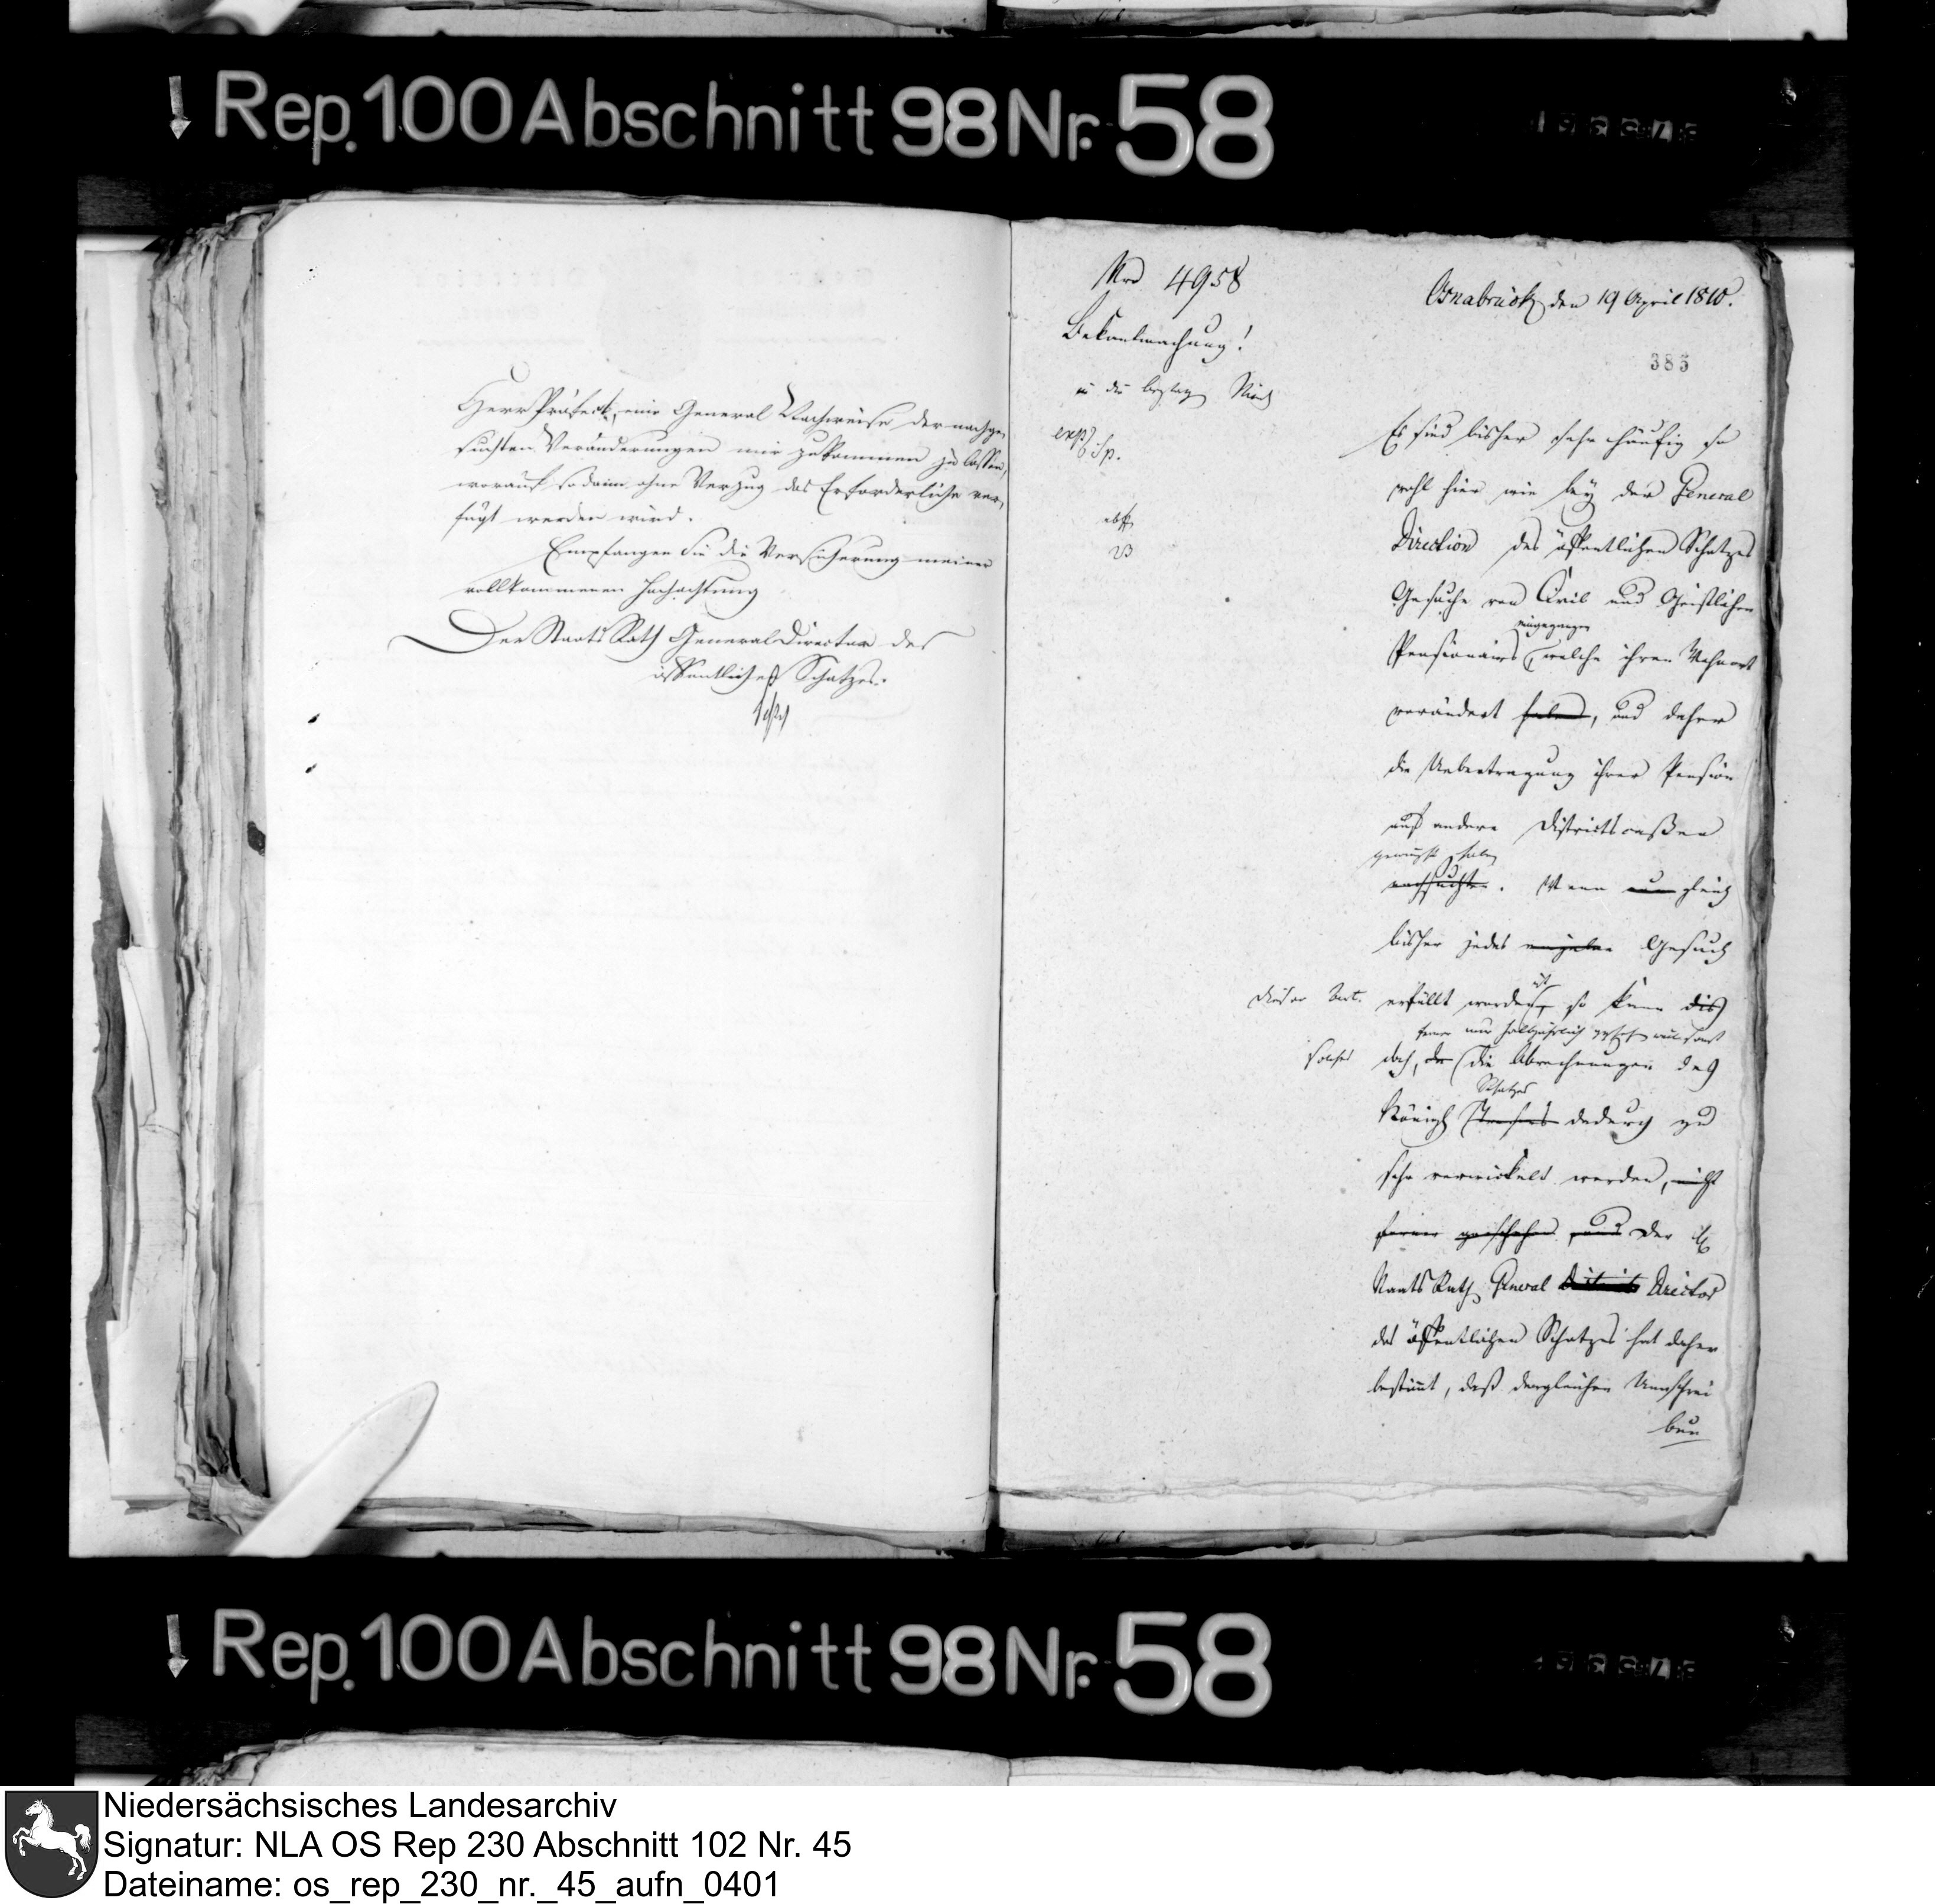 Rep. 100 Abschnitt 98 Nr. 58
Herr Präfect, eine General Nachweise der nachge-
suchten Veränderungen mir zukommen zu lassen,
worauf sodann ohne Verzug das Erforderliche ver-
fügt werden wird.
Empfangen Sie die Versicherung meiner
vollkommenen Hochachtung
Der Staats Rath General Director des
öffentlichen Schatzes.
Nro 4958
Bekantmachung!
in die
exp
Osnabrück den 19 April 1810.
383
Es sind bisher sehr häufig so
wohl hier wie bey der General
Direction des öffentlichen Schatzes
Gesuche von Civil und Geistlichen
eingegangen
Pensionairs, welche ihren Wohnort
verändert haben, und daher
die Uebertragung ihrer Pension
auf andere Districtscaßen
gewünscht haben
nachsuchten. Wenn nun gleich
bisher jedes einzelne Gesuch
ist
erfüllt worden, so kann dis
ferner nur halbjährlich geschehen weil sonst
solches doch, da die Abrechnungen des
Schatzes
Königl Tresors dadurch zu
sehr verwickelt werden, nicht
ferner geschehen, und der H
Staats Rath General Director
des öffentlichen Schatzes hat daher
bestimt, daß dergleichen Umschrei
bun
Rep. 100 Abschnitt 98 Nr. 58
Niedersächsisches Landesarchiv
Signatur: NLA OS Rep 230 Abschnitt 102 Nr. 45
Dateiname: os_rep_230_nr._45_aufn_0401